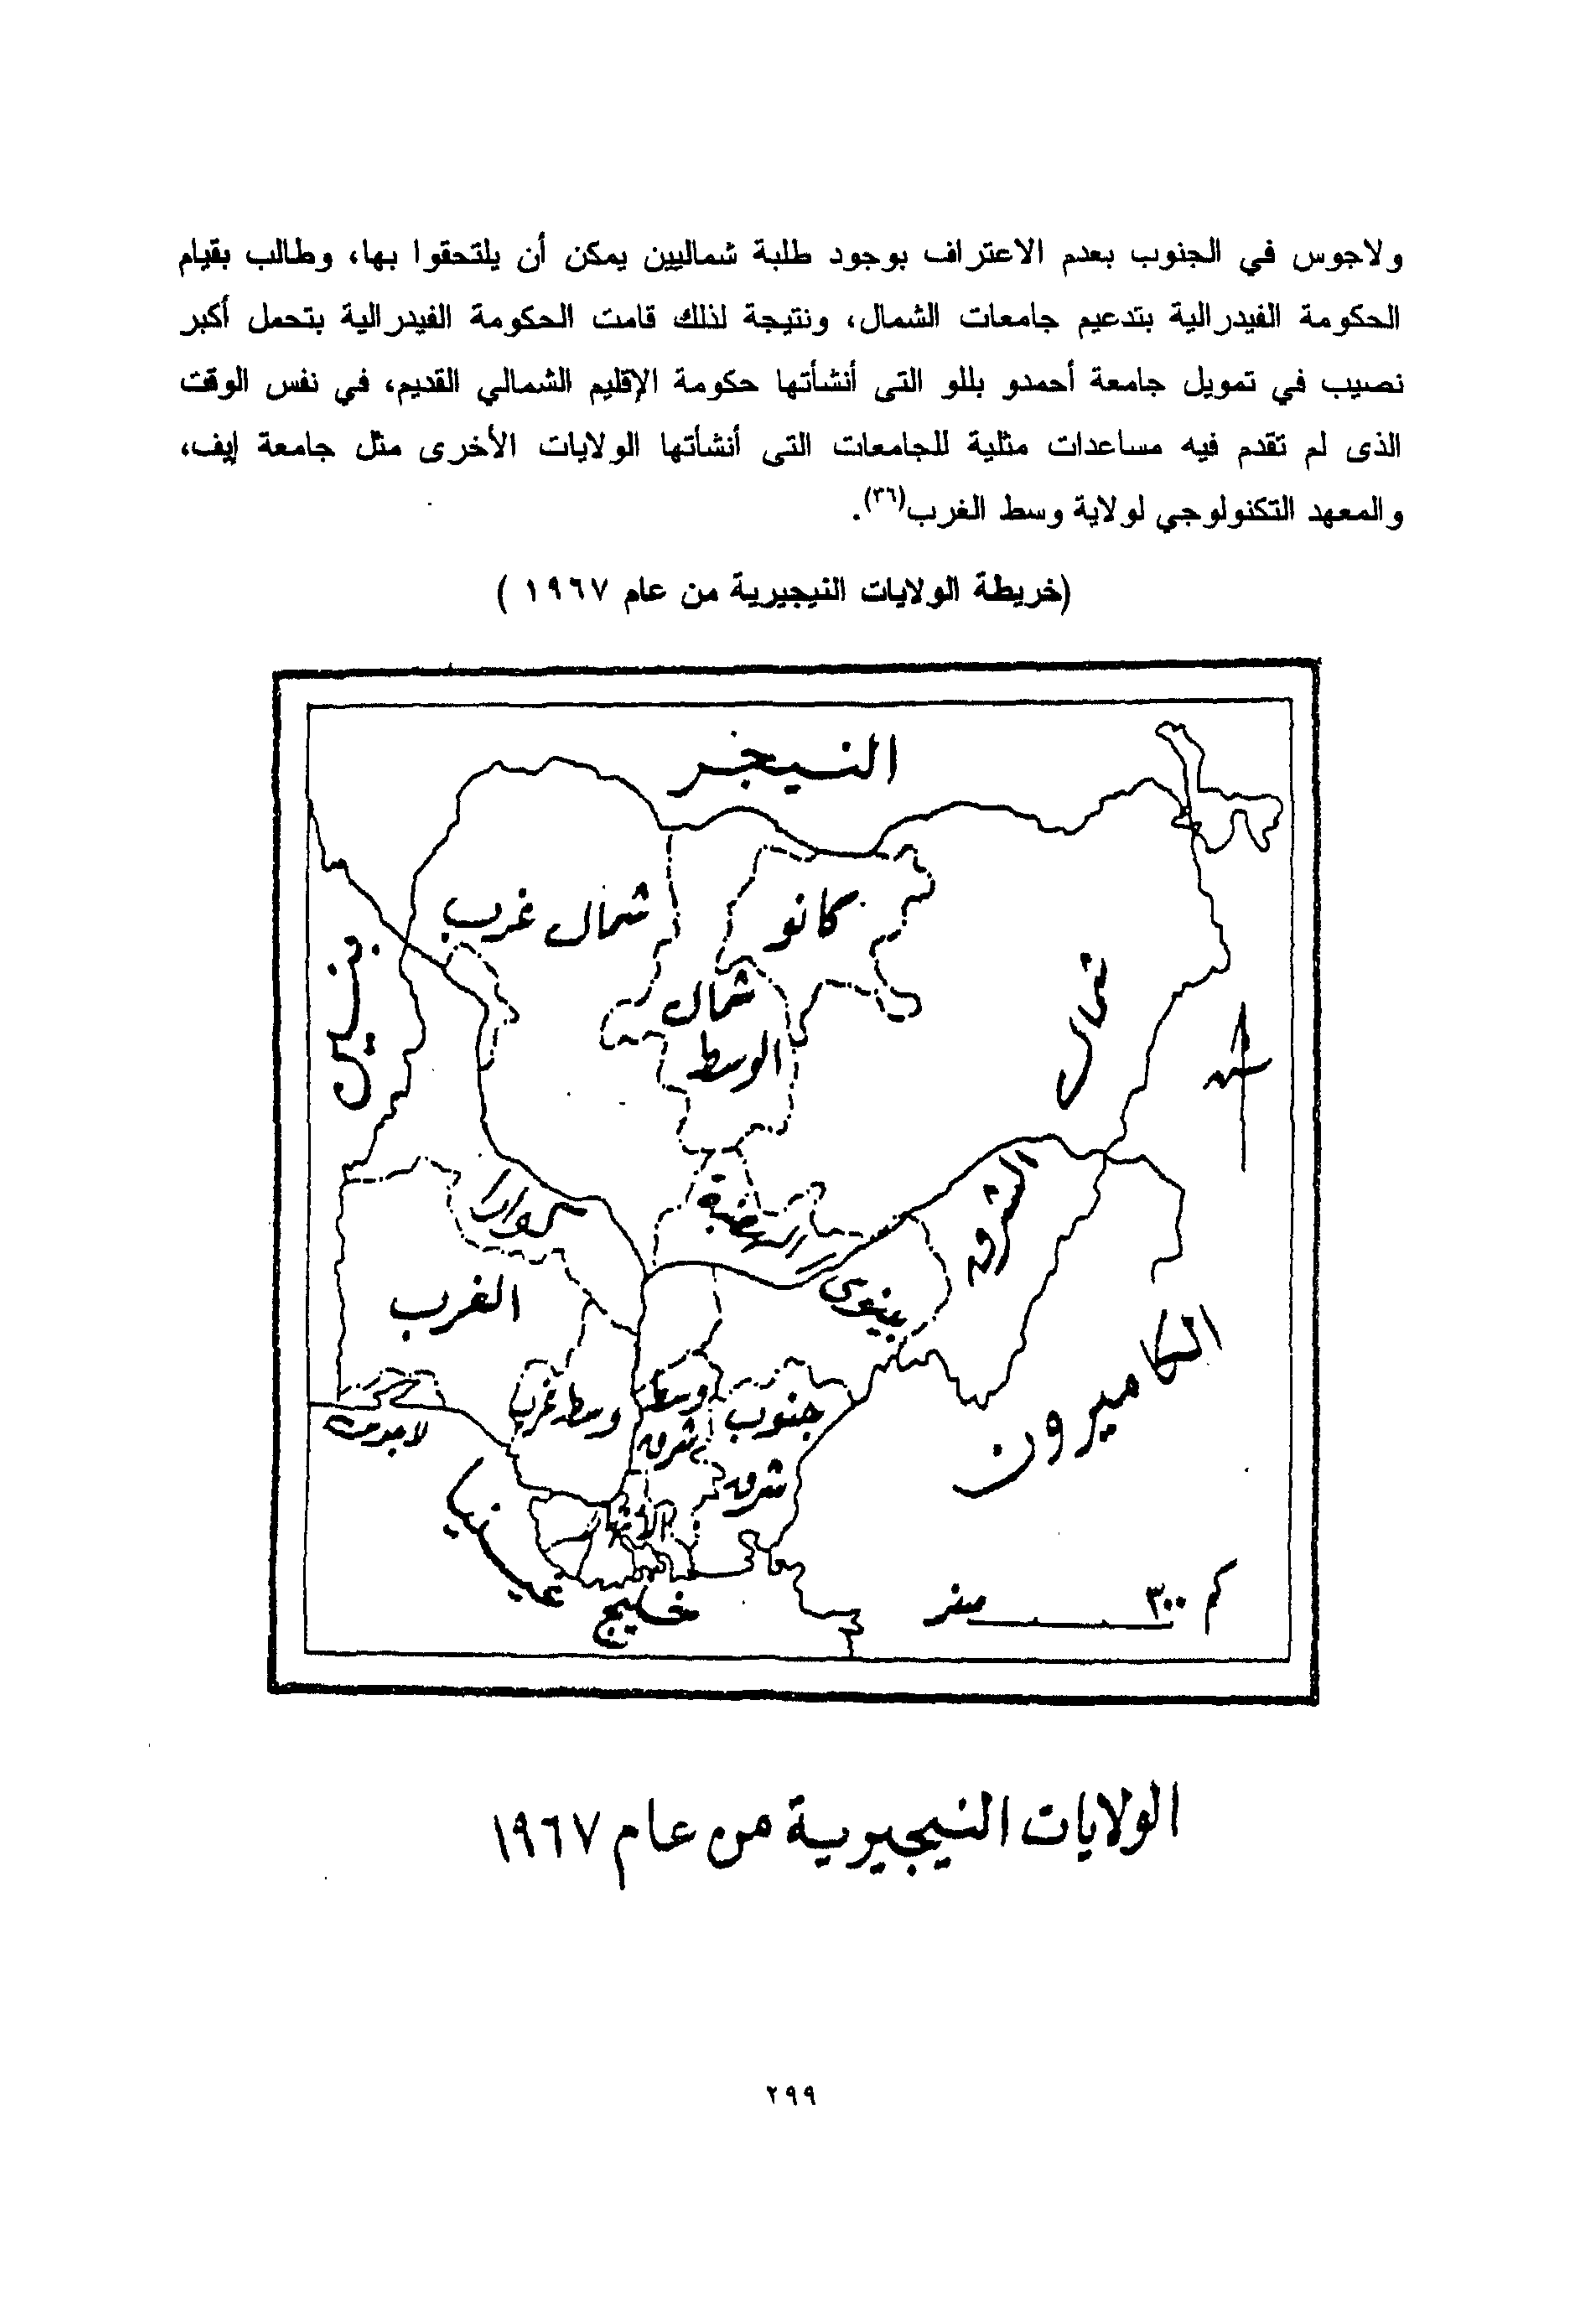 ولاجوس في الجنوب بعدم الاعتراف بوجود طلبة شماليين يمكن أن يلتحقوا بها، وطالب بقيام
الحكومة الفيدرالية بتدعيم جامعات الشمال، ونتيجة لذلك قامت الحكومة الفيدرالية بتحمل أكبر
نصيب في تمويل جامعة أحمدو بللو التى أنشأتها حكومة الإقليم الشمالي القديم، في نفس الوقت
الذى لم تقدم فيه مساعدات مثلية للجامعات التى أنشأتها الولايات الأخرى مثل جامعة إيف،
والمعهد التكنولوجي لولاية وسط الغرب(٣٦).
(خريطة الولايات النيجيرية من عام ١٩٦٧ )
النيجر
شمال غرب
كانو
شمال
الوسط
شمال
الشرق
بنين
كوارا
الهضبة
بينوى
الغرب
الكاميرون
لاجوس
وسط غرب
وسط
شرق
جنوب
شرق
الأنهار
خليج
غينيا
كم ٣٠٠ صفر
الولايات النيجيرية من عام ١٩٦٧
٢٩٩